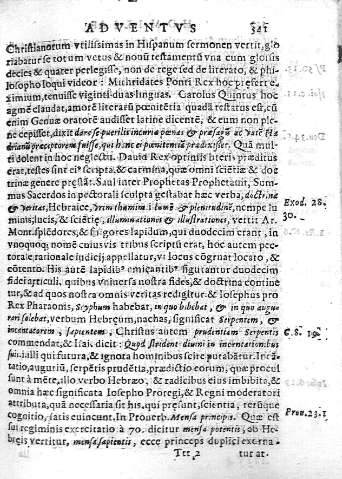 ADVENTVS 341
Christianorum vtilissimas in Hispanum sermonen vertit, glo
riabatur se totum vetus & nouū testamentū vna cum glossis
decies & quater perlegisse, non de rege sed de literato, & phi-
losopho loqui videor: Mithridates Ponti Rex hoc præfert e-
ximium, tenuisse viginti duas linguas. Carolus Quintus hoc
agmē claudat, amorē literarū pœnitētia quadā testatus est, cū
enim Genuæ oratorē audisset latine dicentē, & eum non ple-
ne cepisset, dixit dare se puerilis incuriæ pœnas &
præceptorem fuisse, qui hanc ei pœnitentiā prædixisset. Quā mul-
ti dolent in hoc neglecti. Dauid Rex optimis literis præditus
erat, testes sint eiꝰ scripta, & carmina, quæ omni sciētiæ & do-
ctrinæ genere præstāt. Saul inter Prophetas Prophetauit, Sum-
mus Sacerdos in pectorali sculpta gestabat hæc verba, doctrinæ
& veritas, Hebraice, Vrim thumim i lumē & plenitudinē, nempe lu
minis, lucis, & sciētiæ, illuminationes & illustrationes, vertit Ar.
Mont. splēdores, & figores lapidum, qui duodecim erant, in
vnoquoq; nomē cuiusvis tribus scriptū erat, hoc autem pec-
torale, rationale iudicij appellatur, vt locus cōgruat locato, &
cōtento. His autē lapidibꝰ emicantibꝰ figurantur duodecim
fidei articuli, quibus vniuersa nostra fides, & doctrina contine
tur, & ad quos nostra omnis veritas redigitur & Iosephus pro
Rex Pharaonis, Scyphum habebat, in quo bibebat, & in quo augu
rari solebat, verbum Hebreum, nachas, significat Serpentem, &
incentatorem, sapientem, Christus autem prudentiam Serpentis
commendat, & Isai. dicit: Quòd
suis. i alij qui futura, & ignota hominibus scire putabātur. Incā-
tatio, auguriū, serpētis prudētia, prædictio eorum, quæ procul
sunt à mēte, illo verbo Hebræo, & radicibus eius imbibita, &
omnia hæc significat Iosepho Proregi, & Regni moderatori
attributa, quā necessaria sit his, qui præsunt, scientia, rerūque
cognitio, satis euincunt. In Prouerb. Mensa principis. Quæ est
sui regiminis exercitatio à 70. dicitur mensa potentis, ab He-
breis vertitur, mensa sapientis, ecce princeps duplici externa-
Ttt 2 tur at-
Exod. 28.
30.
Prou. 23.1